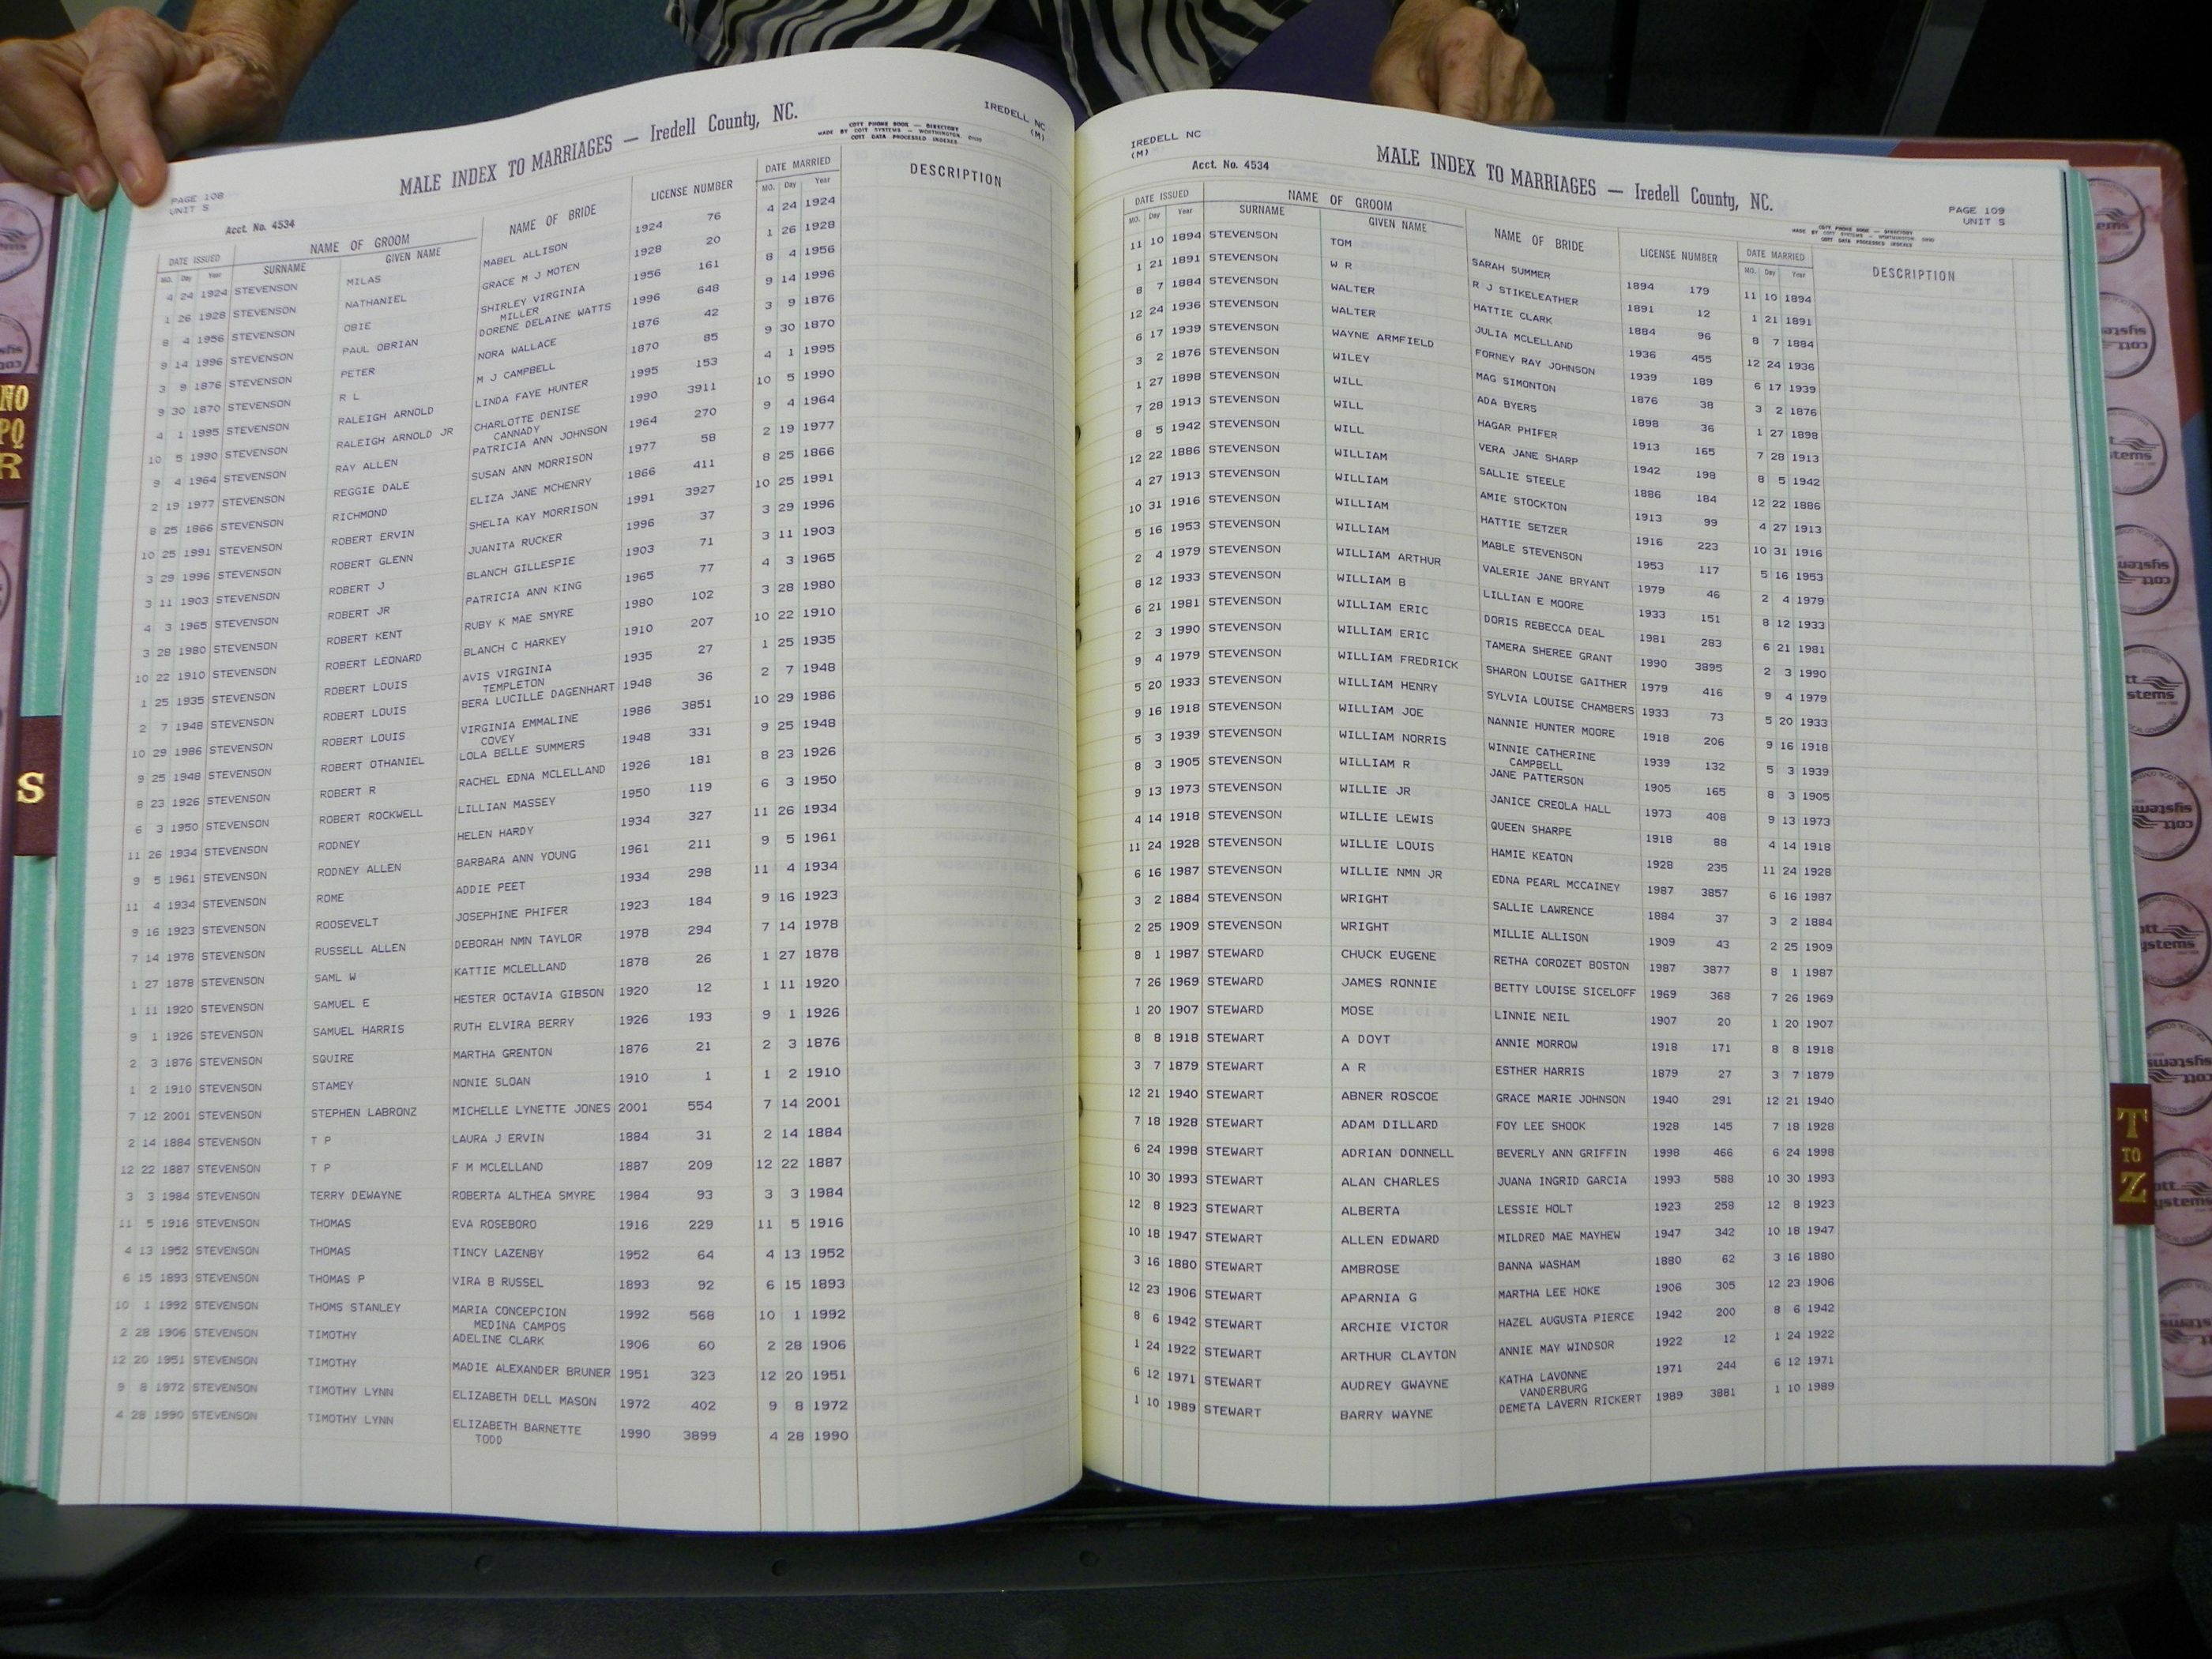 IREDELL NC
(M)
MALE INDEX TO MARRIAGES — Iredell County, NC.
COTT PHONE BOOK — DIRECTORY
MADE BY COTT SYSTEMS — WORTHINGTON, OHIO
COTT DATA PROCESSED INDEXES
PAGE 108
UNIT S
Acct. No. 4534
DATE ISSUED NAME OF GROOM NAME OF BRIDE LICENSE NUMBER DATE MARRIED DESCRIPTION
MO. Day Year SURNAME GIVEN NAME MO. Day Year
4 24 1924 STEVENSON MILAS MABEL ALLISON 1924 76 4 24 1924
1 26 1928 STEVENSON NATHANIEL GRACE M J MOTEN 1928 20 1 26 1928
8 4 1956 STEVENSON OBIE SHIRLEY VIRGINIA 1956 161 8 4 1956
MILLER
9 14 1996 STEVENSON PAUL OBRIAN DORENE DELAINE WATTS 1996 648 9 14 1996
3 9 1876 STEVENSON PETER NORA WALLACE 1876 42 3 9 1876
9 30 1870 STEVENSON R L M J CAMPBELL 1870 85 9 30 1870
4 1 1995 STEVENSON RALEIGH ARNOLD LINDA FAYE HUNTER 1995 153 4 1 1995
10 5 1990 STEVENSON RALEIGH ARNOLD JR CHARLOTTE DENISE 1990 3911 10 5 1990
CANNADY
9 4 1964 STEVENSON RAY ALLEN PATRICIA ANN JOHNSON 1964 270 9 4 1964
2 19 1977 STEVENSON REGGIE DALE SUSAN ANN MORRISON 1977 58 2 19 1977
8 25 1866 STEVENSON RICHMOND ELIZA JANE MCHENRY 1866 411 8 25 1866
10 25 1991 STEVENSON ROBERT ERVIN SHELIA KAY MORRISON 1991 3927 10 25 1991
3 29 1996 STEVENSON ROBERT GLENN JUANITA RUCKER 1996 37 3 29 1996
3 11 1903 STEVENSON ROBERT J BLANCH GILLESPIE 1903 71 3 11 1903
4 3 1965 STEVENSON ROBERT JR PATRICIA ANN KING 1965 77 4 3 1965
3 28 1980 STEVENSON ROBERT KENT RUBY K MAE SMYRE 1980 102 3 28 1980
10 22 1910 STEVENSON ROBERT LEONARD BLANCH C HARKEY 1910 207 10 22 1910
1 25 1935 STEVENSON ROBERT LOUIS AVIS VIRGINIA 1935 27 1 25 1935
TEMPLETON
2 7 1948 STEVENSON ROBERT LOUIS BERA LUCILLE DAGENHART 1948 36 2 7 1948
10 29 1986 STEVENSON ROBERT LOUIS VIRGINIA EMMALINE 1986 3851 10 29 1986
COVEY
9 25 1948 STEVENSON ROBERT OTHANIEL LOLA BELLE SUMMERS 1948 331 9 25 1948
8 23 1926 STEVENSON ROBERT R RACHEL EDNA MCLELLAND 1926 181 8 23 1926
6 3 1950 STEVENSON ROBERT ROCKWELL LILLIAN MASSEY 1950 119 6 3 1950
11 26 1934 STEVENSON RODNEY HELEN HARDY 1934 327 11 26 1934
9 5 1961 STEVENSON RODNEY ALLEN BARBARA ANN YOUNG 1961 211 9 5 1961
11 4 1934 STEVENSON ROME ADDIE PEET 1934 298 11 4 1934
9 16 1923 STEVENSON ROOSEVELT JOSEPHINE PHIFER 1923 184 9 16 1923
7 14 1978 STEVENSON RUSSELL ALLEN DEBORAH NMN TAYLOR 1978 294 7 14 1978
1 27 1878 STEVENSON SAML W KATTIE MCLELLAND 1878 26 1 27 1878
1 11 1920 STEVENSON SAMUEL E HESTER OCTAVIA GIBSON 1920 12 1 11 1920
9 1 1926 STEVENSON SAMUEL HARRIS RUTH ELVIRA BERRY 1926 193 9 1 1926
2 3 1876 STEVENSON SQUIRE MARTHA GRENTON 1876 21 2 3 1876
1 2 1910 STEVENSON STAMEY NONIE SLOAN 1910 1 1 2 1910
7 12 2001 STEVENSON STEPHEN LABRONZ MICHELLE LYNETTE JONES 2001 554 7 14 2001
2 14 1884 STEVENSON T P LAURA J ERVIN 1884 31 2 14 1884
12 22 1887 STEVENSON T P F M MCLELLAND 1887 209 12 22 1887
3 3 1984 STEVENSON TERRY DEWAYNE ROBERTA ALTHEA SMYRE 1984 93 3 3 1984
11 5 1916 STEVENSON THOMAS EVA ROSEBORO 1916 229 11 5 1916
4 13 1952 STEVENSON THOMAS TINCY LAZENBY 1952 64 4 13 1952
6 15 1893 STEVENSON THOMAS P VIRA B RUSSEL 1893 92 6 15 1893
10 1 1992 STEVENSON THOMS STANLEY MARIA CONCEPCION 1992 568 10 1 1992
MEDINA CAMPOS
2 28 1906 STEVENSON TIMOTHY ADELINE CLARK 1906 60 2 28 1906
12 20 1951 STEVENSON TIMOTHY MADIE ALEXANDER BRUNER 1951 323 12 20 1951
9 8 1972 STEVENSON TIMOTHY LYNN ELIZABETH DELL MASON 1972 402 9 8 1972
4 28 1990 STEVENSON TIMOTHY LYNN ELIZABETH BARNETTE 1990 3899 4 28 1990
TODD
IREDELL NC
(M)
Acct. No. 4534
MALE INDEX TO MARRIAGES — Iredell County, NC.
PAGE 109
UNIT S
COTT PHONE BOOK — DIRECTORY
MADE BY COTT SYSTEMS — WORTHINGTON, OHIO
COTT DATA PROCESSED INDEXES
DATE ISSUED NAME OF GROOM NAME OF BRIDE LICENSE NUMBER DATE MARRIED DESCRIPTION
MO. Day Year SURNAME GIVEN NAME MO. Day Year
11 10 1894 STEVENSON TOM SARAH SUMMER 1894 179 11 10 1894
1 21 1891 STEVENSON W R R J STIKELEATHER 1891 12 1 21 1891
8 7 1884 STEVENSON WALTER HATTIE CLARK 1884 96 8 7 1884
12 24 1936 STEVENSON WALTER JULIA MCLELLAND 1936 455 12 24 1936
6 17 1939 STEVENSON WAYNE ARMFIELD FORNEY RAY JOHNSON 1939 189 6 17 1939
3 2 1876 STEVENSON WILEY MAG SIMONTON 1876 38 3 2 1876
1 27 1898 STEVENSON WILL ADA BYERS 1898 36 1 27 1898
7 28 1913 STEVENSON WILL HAGAR PHIFER 1913 165 7 28 1913
8 5 1942 STEVENSON WILL VERA JANE SHARP 1942 198 8 5 1942
12 22 1886 STEVENSON WILLIAM SALLIE STEELE 1886 184 12 22 1886
4 27 1913 STEVENSON WILLIAM AMIE STOCKTON 1913 99 4 27 1913
10 31 1916 STEVENSON WILLIAM HATTIE SETZER 1916 223 10 31 1916
5 16 1953 STEVENSON WILLIAM MABLE STEVENSON 1953 117 5 16 1953
2 4 1979 STEVENSON WILLIAM ARTHUR VALERIE JANE BRYANT 1979 46 2 4 1979
8 12 1933 STEVENSON WILLIAM B LILLIAN E MOORE 1933 151 8 12 1933
6 21 1981 STEVENSON WILLIAM ERIC DORIS REBECCA DEAL 1981 283 6 21 1981
2 3 1990 STEVENSON WILLIAM ERIC TAMERA SHEREE GRANT 1990 3895 2 3 1990
9 4 1979 STEVENSON WILLIAM FREDRICK SHARON LOUISE GAITHER 1979 416 9 4 1979
5 20 1933 STEVENSON WILLIAM HENRY SYLVIA LOUISE CHAMBERS 1933 73 5 20 1933
9 16 1918 STEVENSON WILLIAM JOE NANNIE HUNTER MOORE 1918 206 9 16 1918
5 3 1939 STEVENSON WILLIAM NORRIS WINNIE CATHERINE 1939 132 5 3 1939
CAMPBELL
8 3 1905 STEVENSON WILLIAM R JANE PATTERSON 1905 165 8 3 1905
9 13 1973 STEVENSON WILLIE JR JANICE CREOLA HALL 1973 408 9 13 1973
4 14 1918 STEVENSON WILLIE LEWIS QUEEN SHARPE 1918 88 4 14 1918
11 24 1928 STEVENSON WILLIE LOUIS HAMIE KEATON 1928 235 11 24 1928
6 16 1987 STEVENSON WILLIE NMN JR EDNA PEARL MCCAINEY 1987 3857 6 16 1987
3 2 1884 STEVENSON WRIGHT SALLIE LAWRENCE 1884 37 3 2 1884
2 25 1909 STEVENSON WRIGHT MILLIE ALLISON 1909 43 2 25 1909
8 1 1987 STEWARD CHUCK EUGENE RETHA COROZET BOSTON 1987 3877 8 1 1987
7 26 1969 STEWARD JAMES RONNIE BETTY LOUISE SICELOFF 1969 368 7 26 1969
1 20 1907 STEWARD MOSE LINNIE NEIL 1907 20 1 20 1907
8 8 1918 STEWART A DOYT ANNIE MORROW 1918 171 8 8 1918
3 7 1879 STEWART A R ESTHER HARRIS 1879 27 3 7 1879
12 21 1940 STEWART ABNER ROSCOE GRACE MARIE JOHNSON 1940 291 12 21 1940
7 18 1928 STEWART ADAM DILLARD FOY LEE SHOOK 1928 145 7 18 1928
6 24 1998 STEWART ADRIAN DONNELL BEVERLY ANN GRIFFIN 1998 466 6 24 1998
10 30 1993 STEWART ALAN CHARLES JUANA INGRID GARCIA 1993 588 10 30 1993
12 8 1923 STEWART ALBERTA LESSIE HOLT 1923 258 12 8 1923
10 18 1947 STEWART ALLEN EDWARD MILDRED MAE MAYHEW 1947 342 10 18 1947
3 16 1880 STEWART AMBROSE BANNA WASHAM 1880 62 3 16 1880
12 23 1906 STEWART APARNIA G MARTHA LEE HOKE 1906 305 12 23 1906
8 6 1942 STEWART ARCHIE VICTOR HAZEL AUGUSTA PIERCE 1942 200 8 6 1942
1 24 1922 STEWART ARTHUR CLAYTON ANNIE MAY WINDSOR 1922 12 1 24 1922
6 12 1971 STEWART AUDREY GWAYNE KATHA LAVONNE 1971 244 6 12 1971
VANDERBURG
1 10 1989 STEWART BARRY WAYNE DEMETA LAVERN RICKERT 1989 3881 1 10 1989
NO
PQ
R
S
T
TO
Z